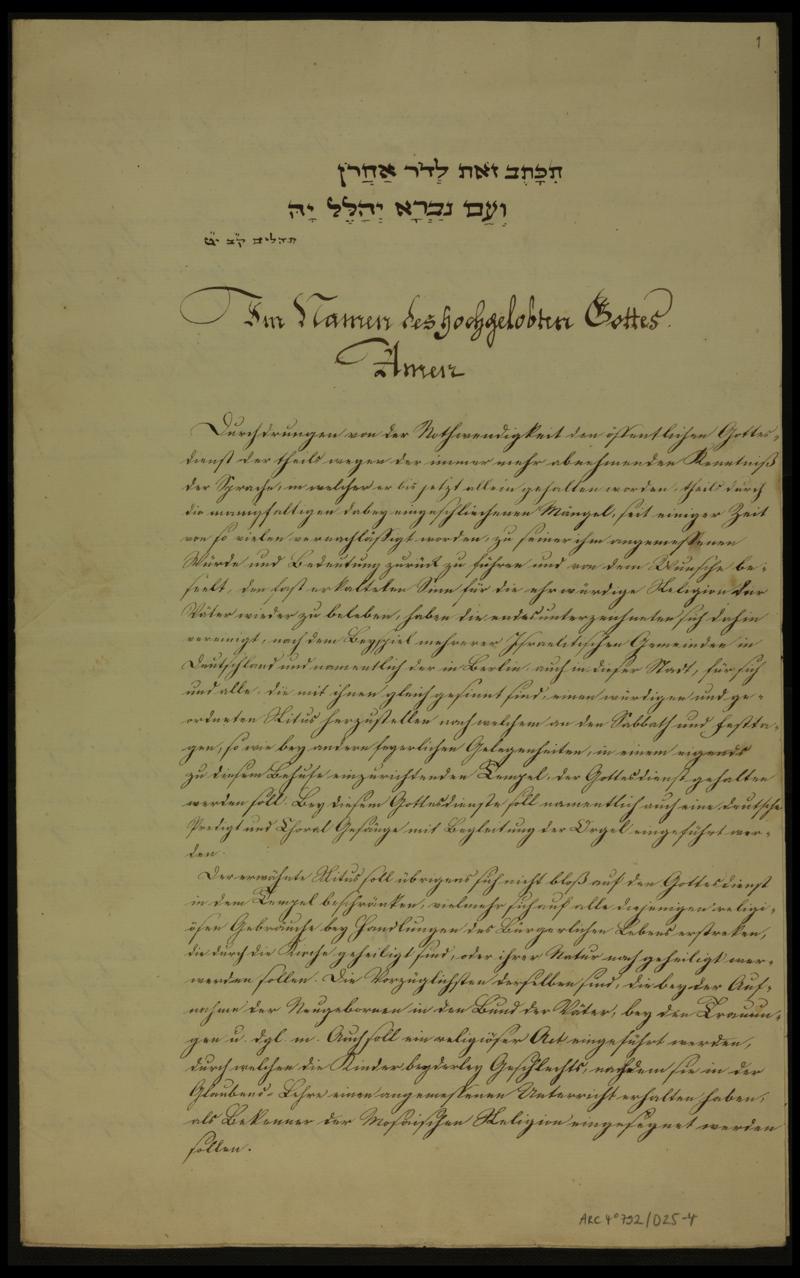 1
תִּכָּתֶב זֹאת לְדֹר אַחֲרֹן
וְעַם נִבְרָא יְהַלֶל יָהּ
תהלים ק״ב י״ט
Im Namen des hochgelobten Gottes.
Amen
Durchdrungen von der Nothwendigkeit den öffentlichen Gottes-
dienst der theils wegen der immer mehr abnehmenden Kenntniß
der Sprache, in welcher er bis jetzt allein gehalten worden, theils durch
die mannigfaltigen dabey eingeschlichenen Mängel, seit einiger Zeit
von so vielen vernachlässigt worden, zu seiner ihm angemessenen
Würde und Bedeutung zurück zu führen und von dem Wunsche be-
seelt, den fast erkalteten Sinn für die ehrwürdige Religion der
Väter wieder zu beleben, haben die endesunterzeichneten sich dahin
vereinigt, nach dem Beyspiel mehrerer Israelitischen Gemeinden in
Deutschland und namentlich der in Berlin auch in dieser Stadt, für sich
und alle, die mit ihnen gleich gesinnt sind, einen würdigen und ge-
ordneten Ritus herzustellen nach welchem an den Sabbath und Festta-
gen, so wie bey andern feyerlichen Gelegenheiten, in einem eigends
zu diesem Behufe einzurichtenden Tempel, der Gottesdienst gehalten
werden soll. Bey diesem Gottesdienste soll namentlich auch eine deutsche
Predigt und Choral Gesänge mit Begleitung der Orgel eingeführt wer-
den.
Der erwähnte Ritus soll übrigens sich nicht bloß auf den Gottesdienst
in dem Tempel beschränken, vielmehr sich auf alle diejenigen religi-
ösen Gebräuche bey Handlungen des Bürgerlichen Lebens erstreken,
die durch die Kirche geheiligt sind, oder ihrer Natur nach geheiligt wer-
werden sollen. Die Vorzüglichsten derselben sind, die bey der Auf-
nahme der Neugebornen in den Bund der Väter, bey den Trauun-
gen u. dgl. m. Auch soll ein religiöser Act eingeführt werden,
durch welchen die Kinder beyderley Geschlechts, nachdem sie in der
Glaubens-Lehre einen angemessenen Unterricht erhalten haben,
als Bekenner der Mosaischen Religion eingesegnet werden
sollen.
ARC 4° 792/D25-4